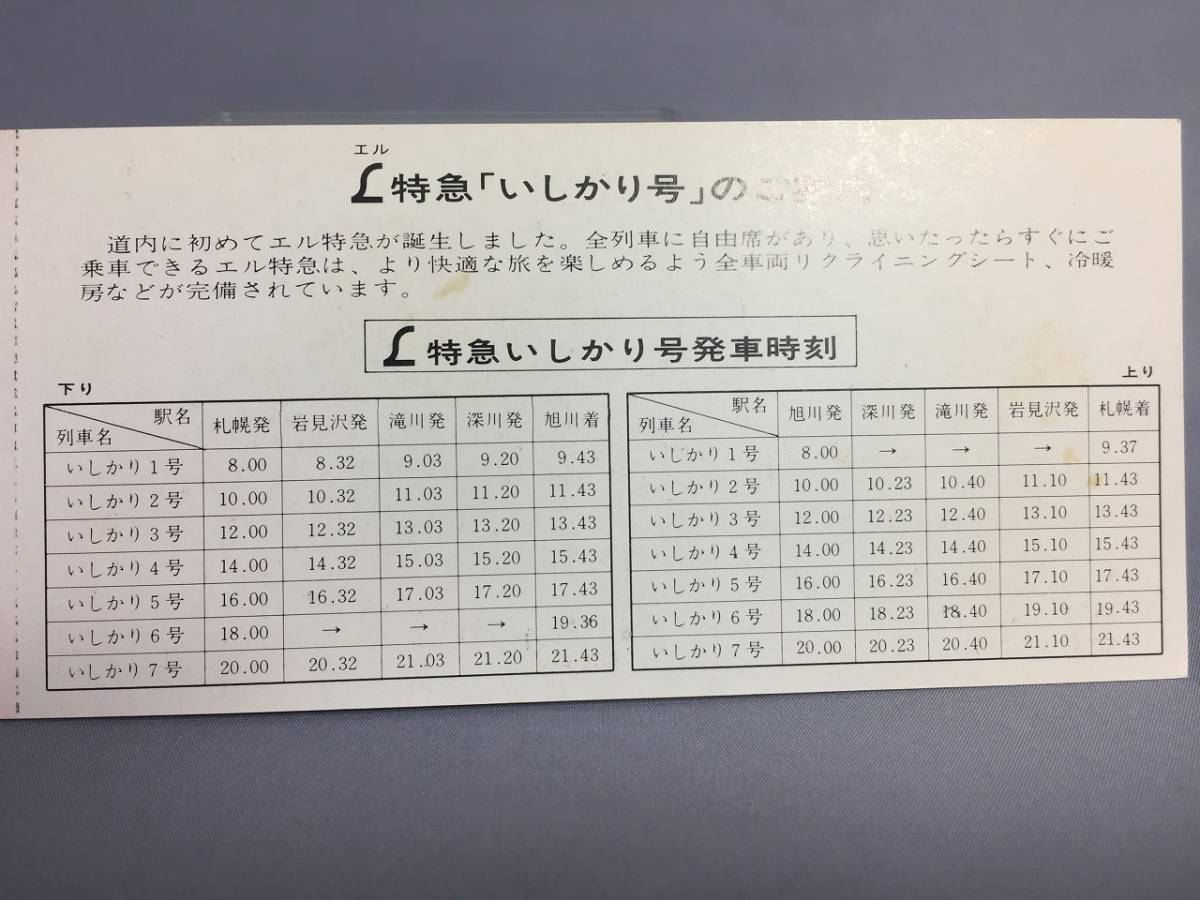 エル
L特急「いしかり号」のご案内
道内に初めてエル特急が誕生しました。全列車に自由席があり、思いたったらすぐにご
乗車できるエル特急は、より快適な旅を楽しめるよう全車両リクライニングシート、冷暖
房などが完備されています。
L特急いしかり号発車時刻
下り
駅名 列車名 札幌発 岩見沢発 滝川発 深川発 旭川着
いしかり1号 8.00 8.32 9.03 9.20 9.43
いしかり2号 10.00 10.32 11.03 11.20 11.43
いしかり3号 12.00 12.32 13.03 13.20 13.43
いしかり4号 14.00 14.32 15.03 15.20 15.43
いしかり5号 16.00 16.32 17.03 17.20 17.43
いしかり6号 18.00 → → → 19.36
いしかり7号 20.00 20.32 21.03 21.20 21.43
上り
駅名 列車名 旭川発 深川発 滝川発 岩見沢発 札幌着
いしかり1号 8.00 → → → 9.37
いしかり2号 10.00 10.23 10.40 11.10 11.43
いしかり3号 12.00 12.23 12.40 13.10 13.43
いしかり4号 14.00 14.23 14.40 15.10 15.43
いしかり5号 16.00 16.23 16.40 17.10 17.43
いしかり6号 18.00 18.23 18.40 19.10 19.43
いしかり7号 20.00 20.23 20.40 21.10 21.43